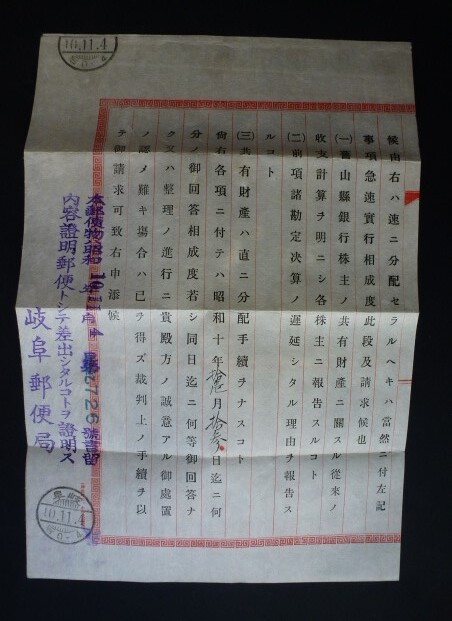 候由右ハ速ニ分配セラルヘキハ當然ニ付左記
事項急速實行相成度此段及請求候也
(一)舊山縣銀行株主ノ共有財產ニ關スル從來ノ
收支計算ヲ明ニシ各株主ニ報告スルコト
(二)前項諸勘定決算ノ遲延シタル理由ヲ報告ス
ルコト
(三)共有財產ハ直ニ分配手續ヲナスコト
尙右各項ニ付テハ昭和十年拾壱月拾五日迄ニ何
分ノ御回答相成度若シ同日迄ニ何等御回答ナ
ク又ハ整理ノ進行ニ貴殿方ノ誠意アル御處置
ノ認メ難キ場合ハ已ヲ得ズ裁判上ノ手續ヲ以
テ御請求可致右申添候
本郵便物ハ昭和10年11月4日第2726號書留
內容證明郵便トシテ差出シタルコトヲ證明ス
岐阜郵便局
10.11.4
岐阜
10.11.4